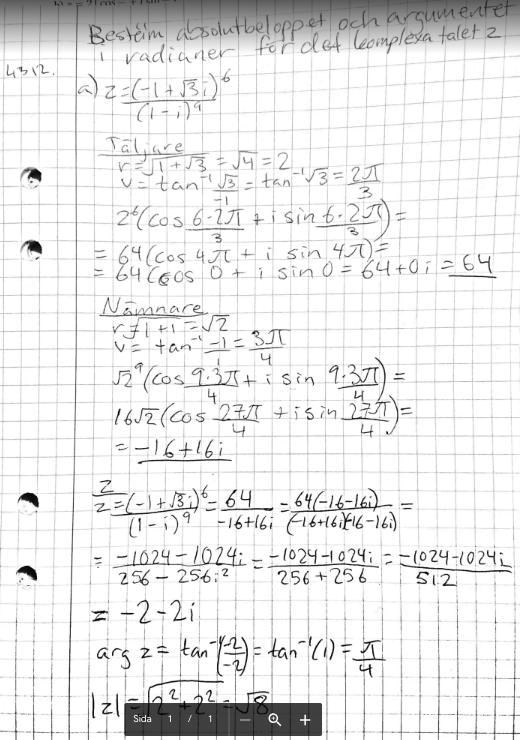 Bestäm absolutbeloppet och argumentet
i radianer för det komplexa talet z
4312.
a) z = (-1 + √3i)^6 / (1 - i)^9
Täljare
r = √1 + √3 = √4 = 2
v = tan^-1 √3/-1 = tan^-1 √3 = 2π/3
2^6 (cos 6·2π/3 + i sin 6·2π/3) =
= 64 (cos 4π + i sin 4π) =
= 64 (cos 0 + i sin 0 = 64 + 0i = 64
Nämnare
r = √1 + 1 = √2
v = tan^-1 -1/1 = 3π/4
√2^9 (cos 9·3π/4 + i sin 9·3π/4) =
16√2 (cos 27π/4 + i sin 27π/4) =
= -16 + 16i
z
z = (-1 + √3i)^6 / (1 - i)^9 = 64 / -16 + 16i = 64(-16 - 16i) / (-16 + 16i)(-16 - 16i) =
= -1024 - 1024i / 256 - 256i^2 = -1024 - 1024i / 256 + 256 = -1024 - 1024i / 512
= -2 - 2i
arg z = tan^-1 (-2/-2) = tan^-1 (1) = π/4
|z| = √2^2 + 2^2 = √8
Sida 1 / 1 − +